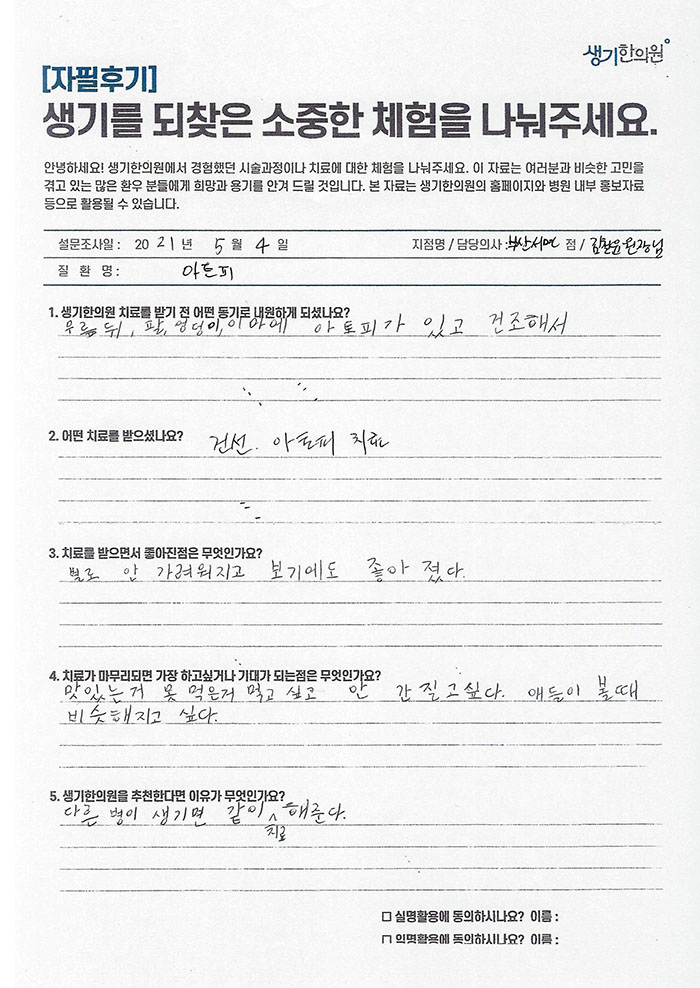 생기한의원
[자필후기]
생기를 되찾은 소중한 체험을 나눠주세요.
안녕하세요! 생기한의원에서 경험했던 시술과정이나 치료에 대한 체험을 나눠주세요. 이 자료는 여러분과 비슷한 고민을
겪고 있는 많은 환우 분들에게 희망과 용기를 안겨 드릴 것입니다. 본 자료는 생기한의원의 홈페이지와 병원 내부 홍보자료
등으로 활용될 수 있습니다.
설문조사일 : 20 21 년 5 월 4 일 지점명 / 담당의사 : 부산서면 점 / 원장님
질 환 명 : 아토피
1. 생기한의원 치료를 받기 전 어떤 동기로 내원하게 되셨나요?
무릎 뒤, 팔, 엉덩이, 이마에 아토피가 있고 건조해서
2. 어떤 치료를 받으셨나요? 건선. 아토피 치료
3. 치료를 받으면서 좋아진점은 무엇인가요?
별로 안 가려워지고 보기에도 좋아 졌다.
4. 치료가 마무리되면 가장 하고싶거나 기대가 되는점은 무엇인가요?
맛있는거 못 먹은거 먹고 싶고 안 간질고싶다. 애들이 볼때
비슷해지고 싶다.
5. 생기한의원을 추천한다면 이유가 무엇인가요?
다른 병이 생기면 같이 치료 해준다.
□ 실명활용에 동의하시나요? 이름 :
□ 익명활용에 동의하시나요? 이름 :